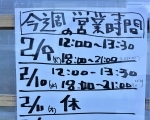 今週の営業時間
2/9(月) 12:00〜13:30
18:00〜21:00
2/10(火) 12:00〜13:30
18:00〜21:00
2/11(水) 休